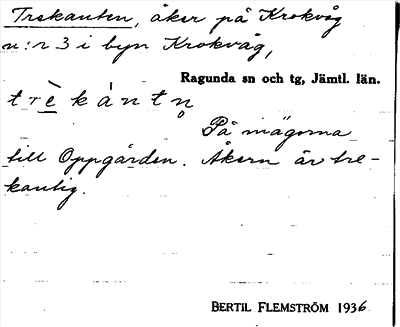 Trekanten, åker på Krokvåg
n:r 3 i byn Krokvåg,
Ragunda sn och tg, Jämtl. län.
t r è k à n t n̥
På mägorna
till Oppgården. Åkern är tre-
kantig.
BERTIL FLEMSTRÖM 1936.